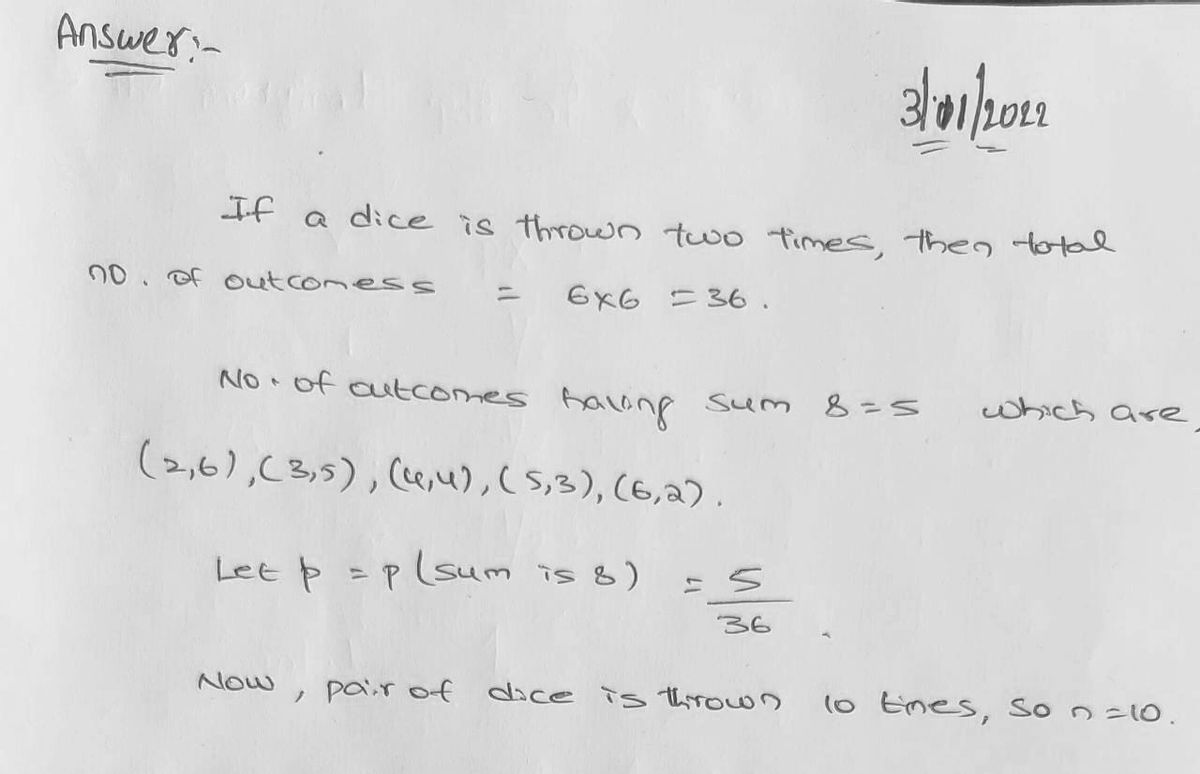 Answer:-
3/01/2022
If a dice is thrown two times, then total
no. of outcomess = 6x6 = 36.
No. of outcomes having sum 8 = 5 which are,
(2,6), (3,5), (4,4), (5,3), (6,2).
Let p = p (sum is 8) = 5
36
Now, pair of dice is thrown 10 times, so n = 10.